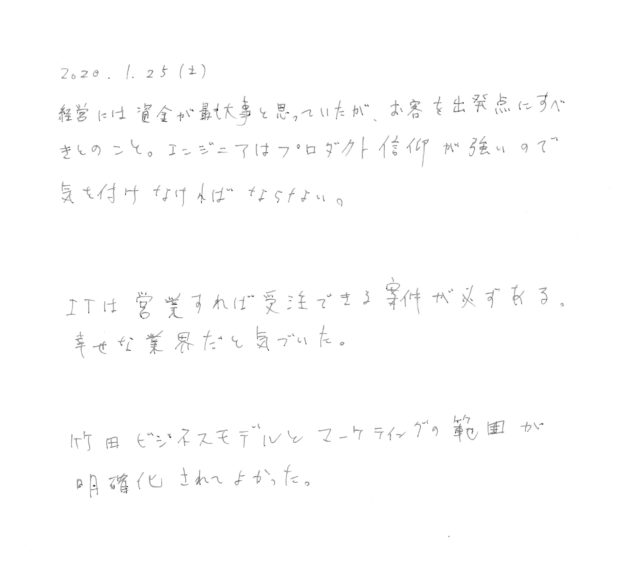 2020.1.25(土)
経営には資金が最も大事と思っていたが、お客を出発点にすべ
きとのこと。エンジニアはプロダクト信仰が強いので
気を付けなければならない。
ITは営業すれば受注できる案件が必ずある。
幸せな業界だと気づいた。
竹田ビジネスモデルとマーケティングの範囲が
明確化されてよかった。